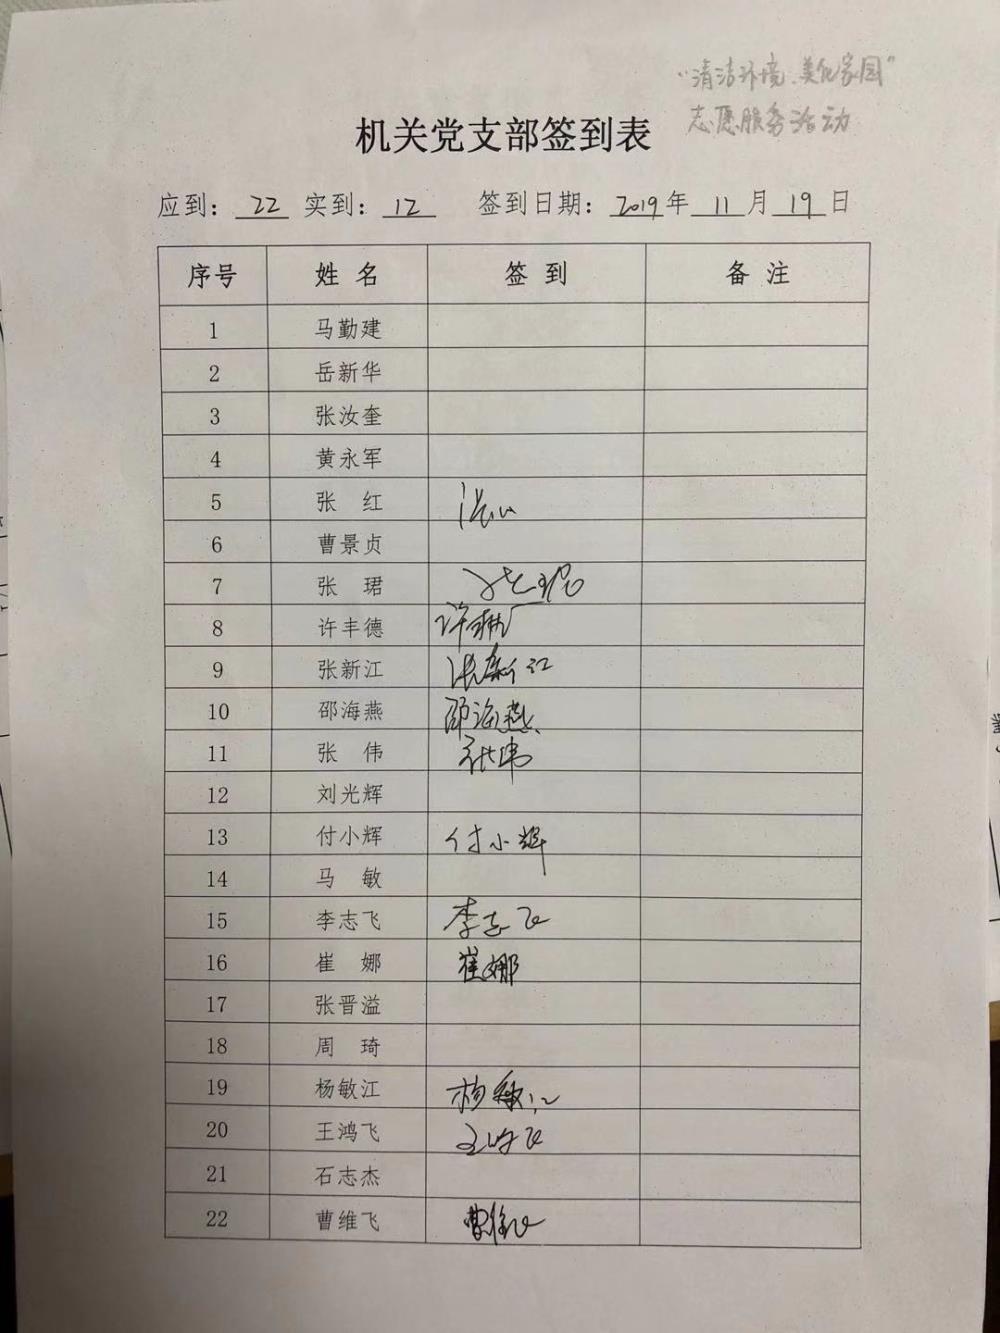 “清洁环境、美化家园”
志愿服务活动
机关党支部签到表
应到：22 实到：12 签到日期：2019年11月19日
序号 姓名 签到 备注
1 马勤建
2 岳新华
3 张汝奎
4 黄永军
5 张红 张红
6 曹景贞
7 张珺 张珺
8 许丰德
9 张新江 张新江
10 邵海燕 邵海燕
11 张伟 张伟
12 刘光辉
13 付小辉 付小辉
14 马敏
15 李志飞 李志飞
16 崔娜 崔娜
17 张晋溢
18 周琦
19 杨敏江 杨敏江
20 王鸿飞 王鸿飞
21 石志杰
22 曹维飞 曹维飞